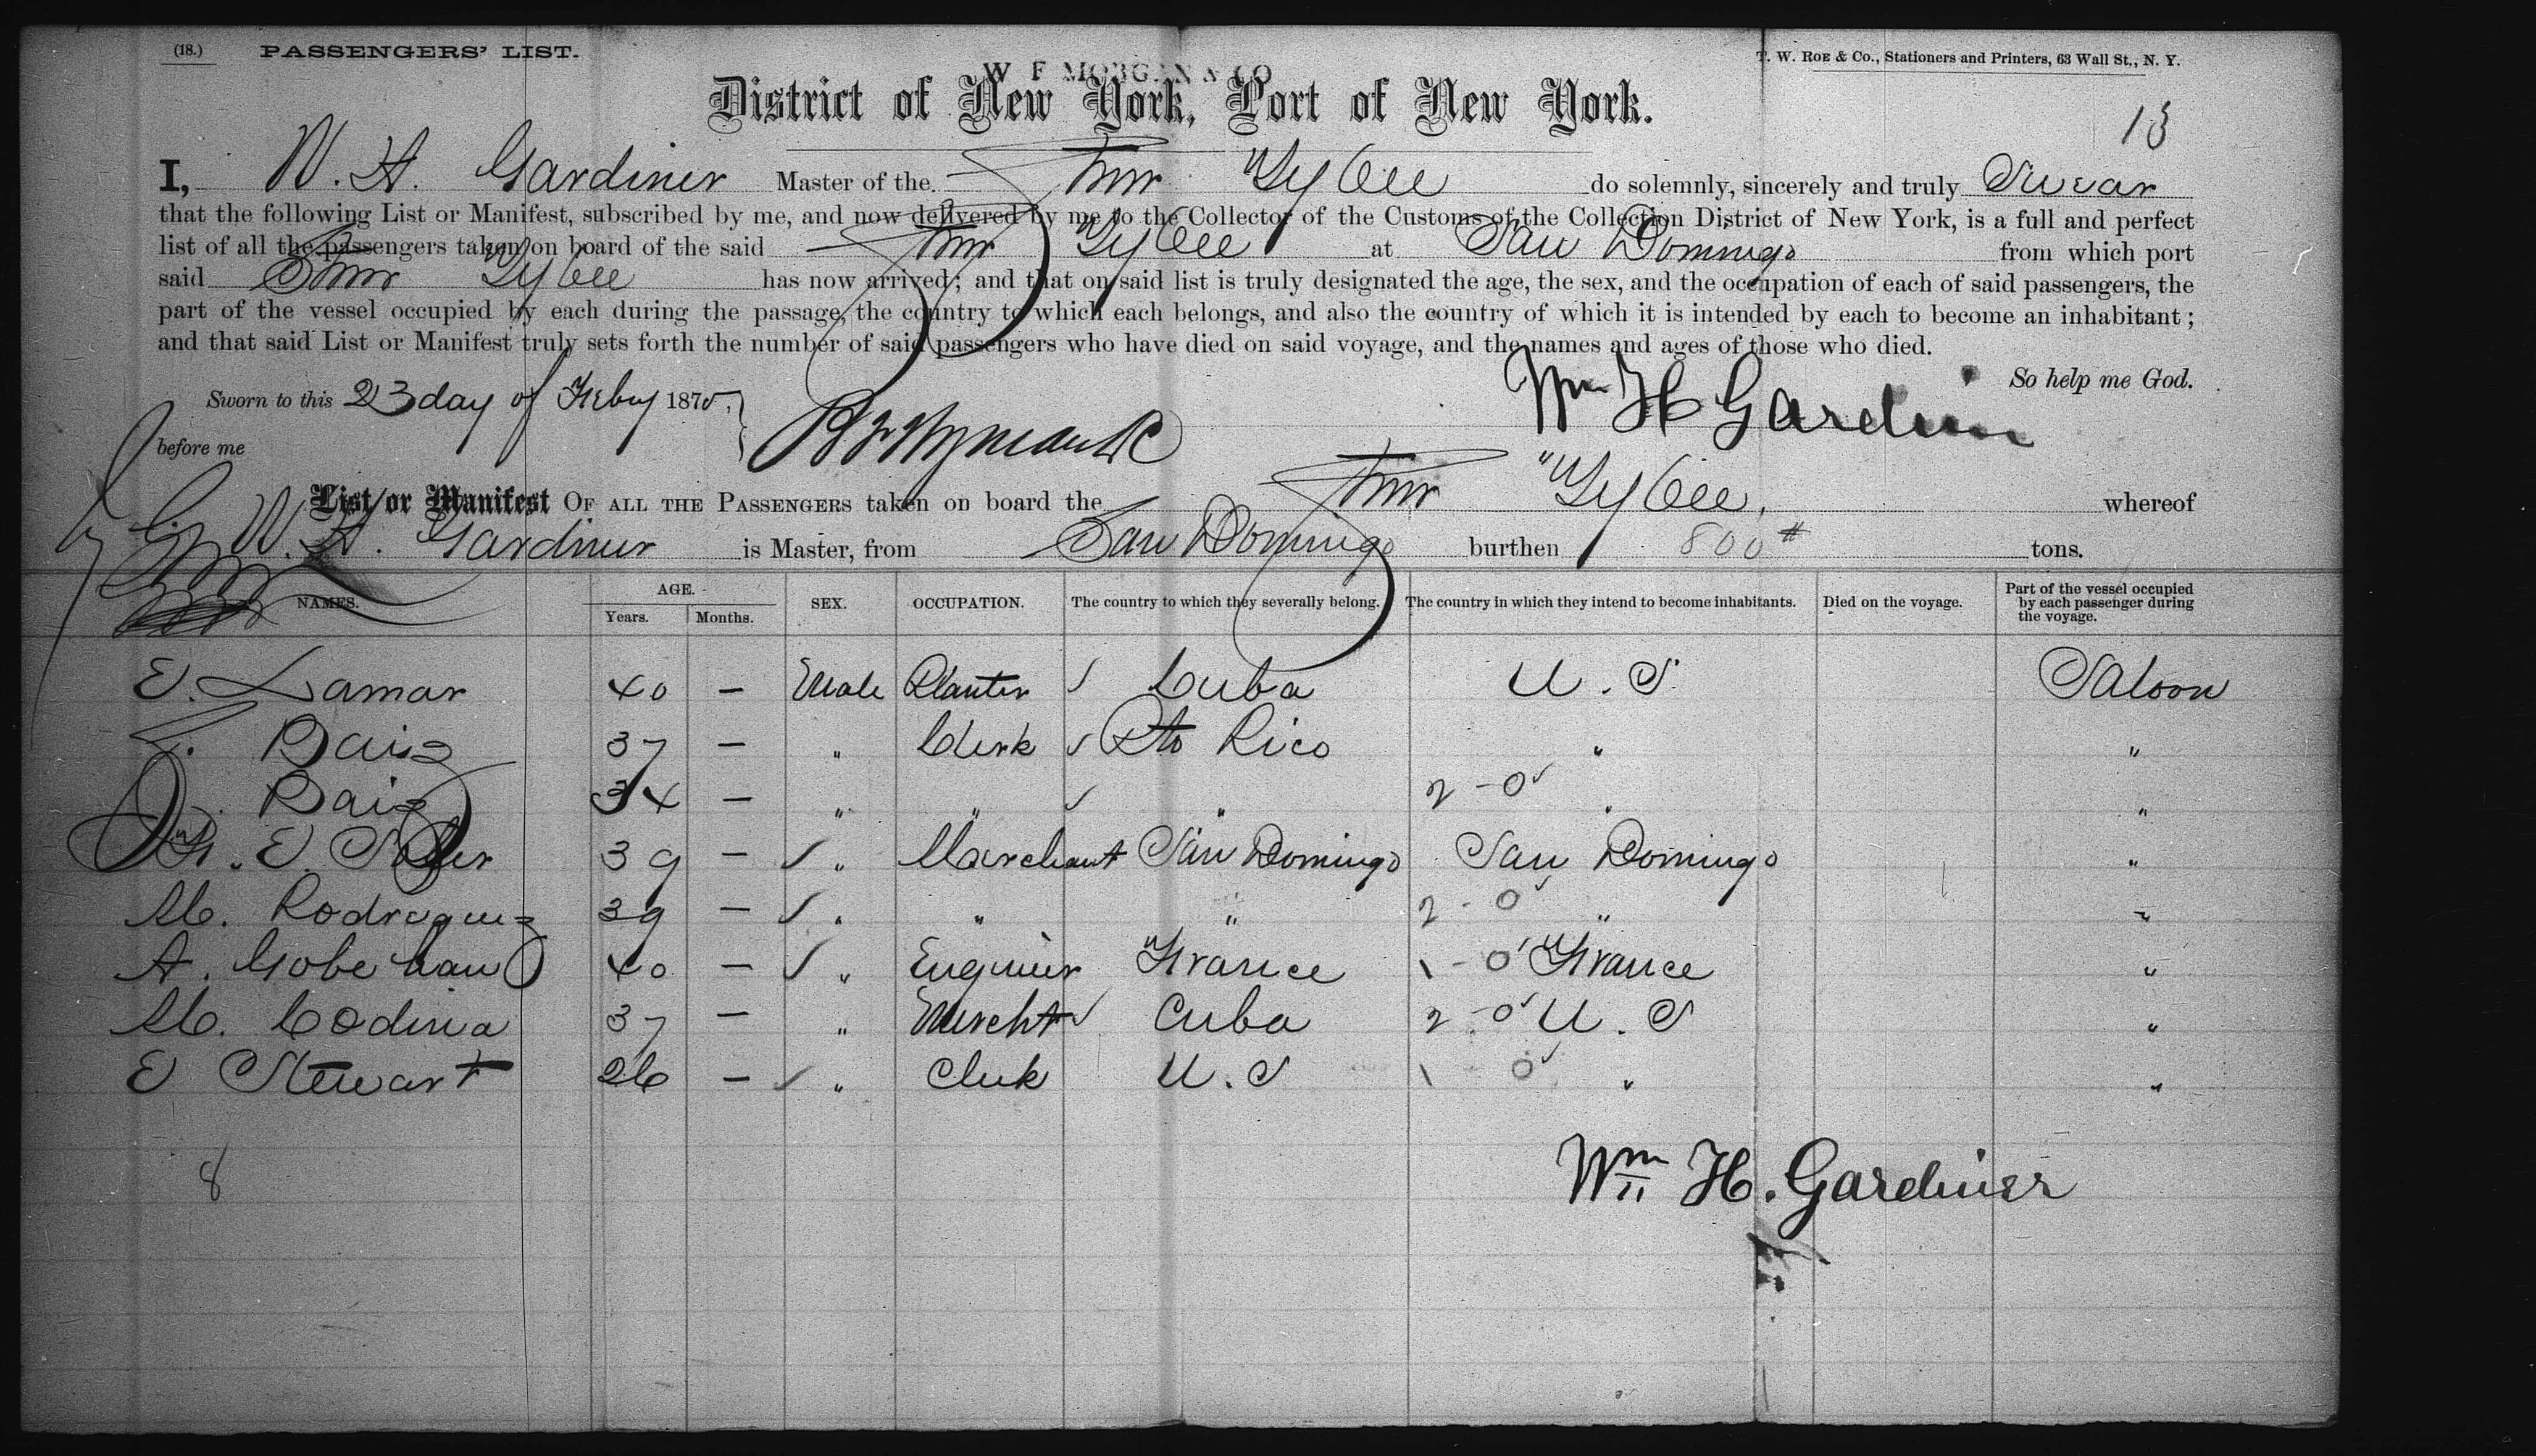 (18.) PASSENGERS' LIST.
T. W. ROE & Co., Stationers and Printers, 63 Wall St., N. Y.
W F MORGAN & CO
District of New York, Port of New York.
13
I, W. H. Gardiner Master of the Stmr "Tybee do solemnly, sincerely and truly Swear
that the following List or Manifest, subscribed by me, and now delivered by me to the Collector of the Customs of the Collection District of New York, is a full and perfect
list of all the passengers taken on board of the said Stmr Tybee at San Domingo from which port
said Stmr Tybee has now arrived; and that on said list is truly designated the age, the sex, and the occupation of each of said passengers, the
part of the vessel occupied by each during the passage, the country to which each belongs, and also the country of which it is intended by each to become an inhabitant;
and that said List or Manifest truly sets forth the number of said passengers who have died on said voyage, and the names and ages of those who died.
So help me God.
Sworn to this 23 day of Feby 1875,
Wm H Gardiner
before me
List or Manifest OF ALL THE PASSENGERS taken on board the Stmr "Tybee, whereof
W. H. Gardiner is Master, from San Domingo burthen 800 tons.
NAMES. AGE. Years. Months. SEX. OCCUPATION. The country to which they severally belong. The country in which they intend to become inhabitants. Died on the voyage. Part of the vessel occupied by each passenger during the voyage.
E. Lamar 40 — Male Planter ✓ Cuba U. S. Saloon
J. Baiz 37 — " Clerk ✓ Pto Rico " "
Baiz 34 — " " ✓ " 2 - 0 ✓ " "
E. 39 — ✓ " Merchant San Domingo San Domingo "
M. Rodreguez 39 — ✓ " " " 2 - 0 ✓ " "
A. 40 — ✓ " Engineer France 1 - 0 ✓ France "
M. Codina 37 — " Mercht ✓ Cuba 2 - 0 ✓ U. S "
E Stewart 26 — ✓ " Clerk U. S 1 0 ✓ " "
8
Wm H. Gardiner